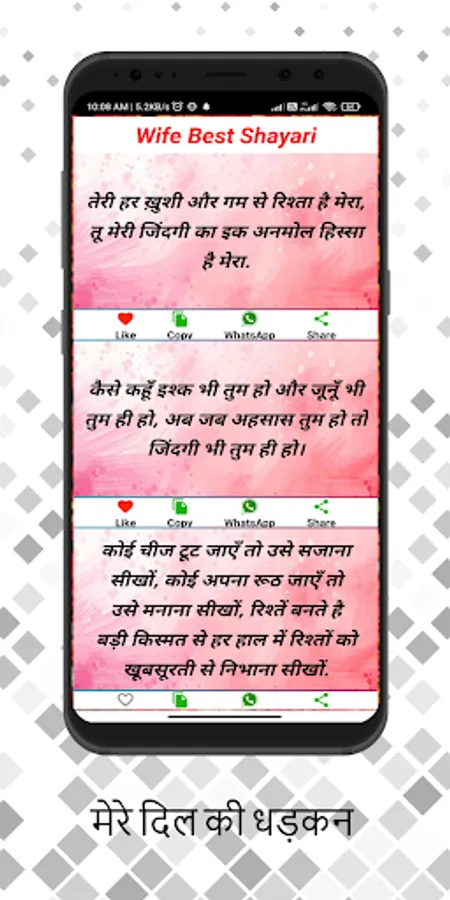 10:08 AM | 5.2KB/s
Wife Best Shayari
तेरी हर ख़ुशी और गम से रिश्ता है मेरा,
तू मेरी जिंदगी का इक अनमोल हिस्सा
है मेरा.
Like Copy WhatsApp Share
कैसे कहूँ इश्क भी तुम हो और जूनूँ भी
तुम ही हो, अब जब अहसास तुम हो तो
जिंदगी भी तुम ही हो।
Like Copy WhatsApp Share
कोई चीज टूट जाएँ तो उसे सजाना
सीखों, कोई अपना रूठ जाएँ तो
उसे मनाना सीखों, रिश्तें बनते है
बड़ी किस्मत से हर हाल में रिश्तों को
खूबसूरती से निभाना सीखों.
मेरे दिल की धड़कन